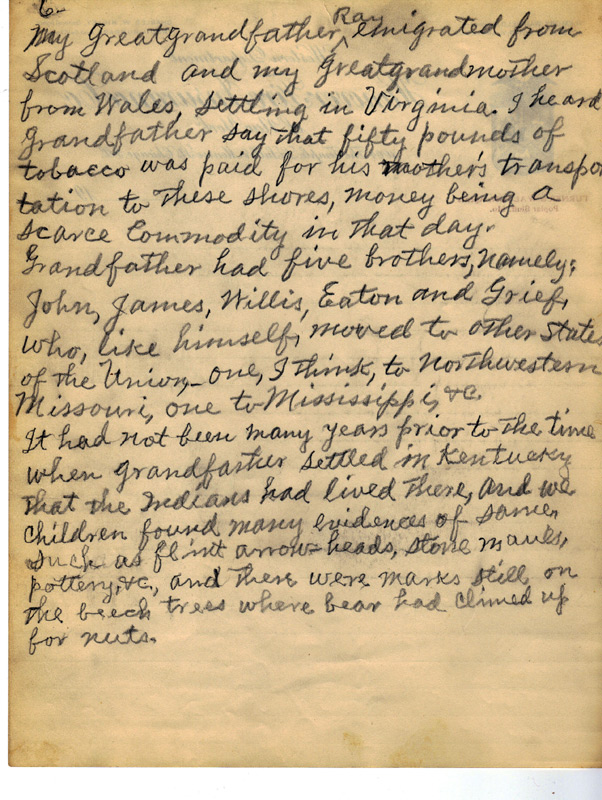 6-
My Greatgrandfather Ray emigrated from
Scotland and my Greatgrandmother
from Wales, settling in Virginia. I heard
grandfather say that fifty pounds of
tobacco was paid for his mother's transpor
tation to these shores, money being a
scarce Commodity in that day.
Grandfather had five brothers, namely:
John, James, Willis, Eaton and Grief,
who, like himself, moved to other States
of the Union,- one, I think, to Northwestern
Missouri, one to Mississippi, &c.
It had not been many years prior to the time
when grandfather settled in Kentucky
that the Indians had lived there, and we
children found many evidences of same,
such as flint arrow-heads, stone mauls,
pottery, &c., and there were marks still on
the beech trees where bear had climed up
for nuts.